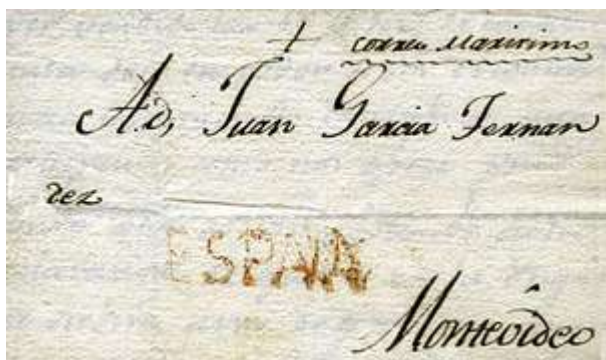 + correo Maritimo
A d, Juan Garcia Fernan
dez
ESPAÑA
Montevideo